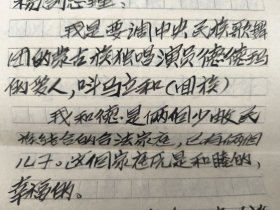 杨易总理：
我是要调中央民族歌舞
团的蒙古族独唱演员德德玛
的爱人，叫马立和(回族)
我和德.是俩个少数民
族结合的合法家庭，已有俩个
儿子。这个家庭既是和睦的，
幸福的。